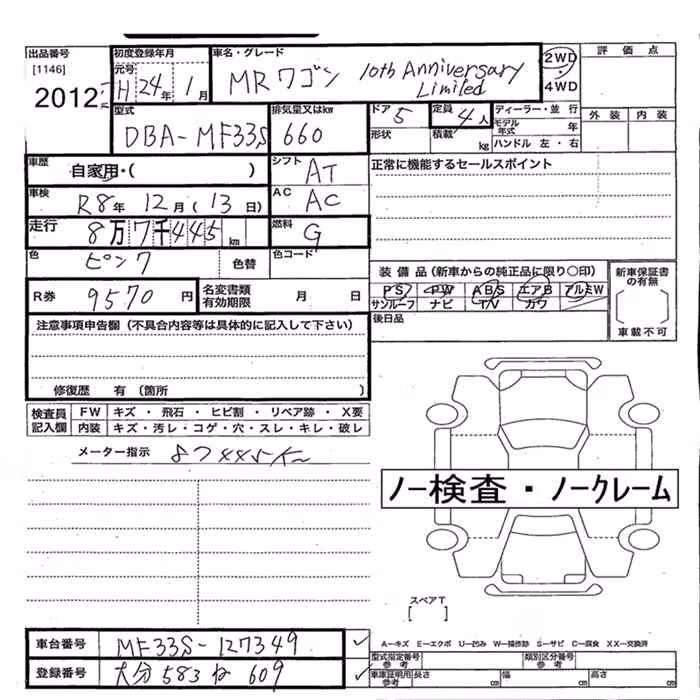 出品番号
[1146]
2012
初度登録年月
元号
H 24年 1月
車名・グレード
MRワゴン 10th Anniversary Limited
2WD
・
4WD
評価点
外装 内装
型式
DBA-MF33S
排気量又はkw
660
ドア 5
形状
定員 4人
積載 kg
ディーラー・並行
モデル年式 年
ハンドル 左・右
車歴
自家用・( )
シフト
AT
正常に機能するセールスポイント
車検
R8年 12月(13日)
AC
AC
走行
8万7千445km
燃料
G
色
ピンク
色替
色コード
装備品(新車からの純正品に限り○印)
PS PW ABS エアB アルミW
サンルーフ ナビ TV カワ
新車保証書の有無
車載不可
後日品
R券
9570円
名変書類
有効期限
月 日
注意事項申告欄(不具合内容等は具体的に記入して下さい)
修復歴 有(箇所 )
検査員
記入欄
FW キズ・飛石・ヒビ割・リペア跡・X要
内装 キズ・汚レ・コゲ・穴・スレ・キレ・破レ
メーター指示 87445K
ノー検査・ノークレーム
スペアT
[ ]
車台番号
MF33S-127349
登録番号
大分583ね609
A…キズ E…エクボ U…凹み W…補修跡 S…サビ C…腐食 XX…交換済
型式指定番号
参考
類別区分番号
参考
車庫証明用
参考
長さ cm 幅 cm 高さ cm